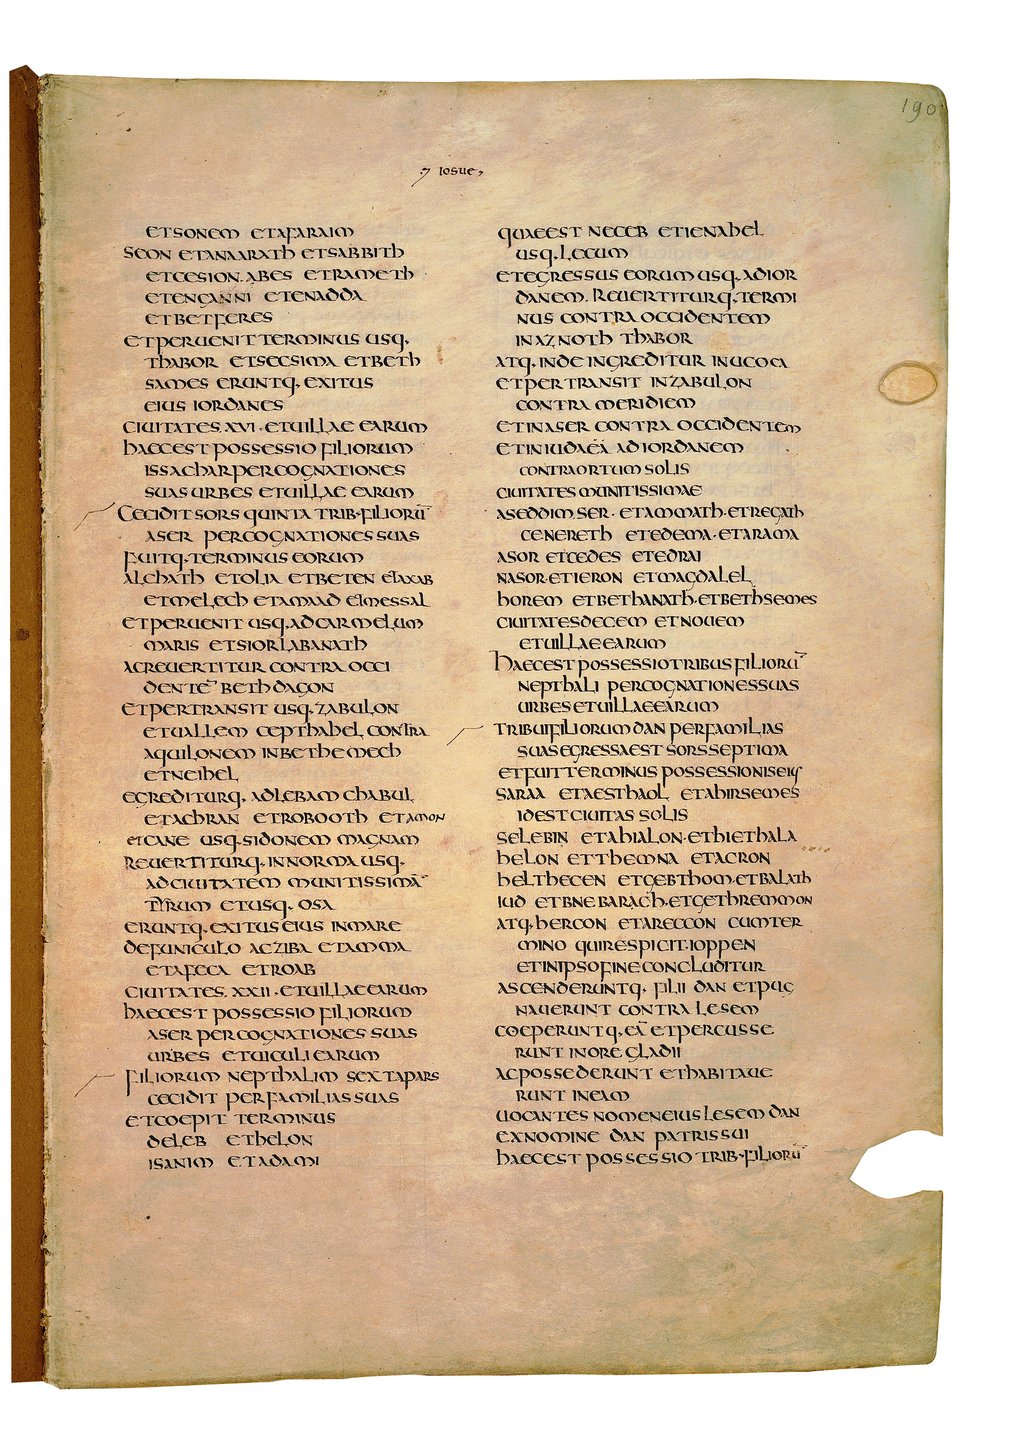 190
iosue
ETSONEM ETAFARAIM
SEON ETANAARATH ETSABBITH
ETCESION. ABES ETRAMETH
ETENGANNI ETENADDA
ETBETFERES
ETPERUENIT TERMINUS USQ.
THABOR ETSECSIMA ETBETH
SAMES ERUNTQ. EXITUS
EIUS IORDANES
CIUITATES. XVI. ETUILLAE EARUM
HAECEST POSSESSIO FILIORUM
ISSACHAR PERCOGNATIONES
SUAS URBES ETUILLAE EARUM
CECIDIT SORS QUINTA TRIB. FILIORU̅
ASER PERCOGNATIONES SUAS
FUITQ. TERMINUS EORUM
ALCHATH ETOLIA ETBETEN ETAXAB
ETMELECH ETAMAAD ELMESSAL
ETPERUENIT USQ. ADCARMELUM
MARIS ETSIORLABANATH
ACREUERTITUR CONTRA OCCI
DENTE̅ BETHDAGON
ETPERTRANSIT USQ. ZABULON
ETUALLEM CEPTHAHEL CONTRA
AQUILONEM INBETHEMECH
ETNEIHEL
EGREDITURQ. ADLEBAM CHABUL
ETACHRAN ETROBOOTH ETAMON
ETCANE USQ. SIDONEM MAGNAM
REUERTITURQ. INNORMA USQ.
ADCIUITATEM MUNITISSIMA̅
TYRUM ETUSQ. OSA
ERUNTQ. EXITUS EIUS INMARE
DEFUNICULO ACZIBA ETAMMA
ETAFECA ETROAB
CIUITATES. XXII. ETUILLAEEARUM
HAECEST POSSESSIO FILIORUM
ASER PERCOGNATIONES SUAS
URBES ETUICULI EARUM
FILIORUM NEPTHALIM SEXTAPARS
CECIDIT PERFAMILIAS SUAS
ETCOEPIT TERMINUS
DELEB ETHELON
ISANIM ETADAMI
QUAEEST NECEB ETIENAHEL
USQ. LECUM
ETEGRESSUS EORUM USQ. ADIOR
DANEM. REUERTITURQ. TERMI
NUS CONTRA OCCIDENTEM
INAZNOTH THABOR
ATQ. INDE INGREDITUR INUCOCA
ETPERTRANSIT INZABULON
CONTRA MERIDIEM
ETINASER CONTRA OCCIDENTEM
ETINIUDAEA ADIORDANEM
CONTRAORTUM SOLIS
CIUITATES MUNITISSIMAE
ASEDDIM. SER. ETAMMATH. ETREGATH
CENERETH ETEDEMA. ETARAMA
ASOR ETCEDES ETEDRAI
NASOR. ETIERON ETMAGDALEL
HOREM ETBETHANATH. ETBETHSEMES
CIUITATESDECEM ETNOUEM
ETUILLAEEARUM
HAECEST POSSESSIOTRIBUS FILIORU̅
NEPTHALI PERCOGNATIONESSUAS
URBES ETUILLAEEARUM
TRIBUIFILIORUM DAN PERFAMILIAS
SUASEGRESSAEST SORSSEPTIMA
ETFUITTERMINUS POSSESSIONISEIUS
SARAA ETAESTHAOL ETAHIRSEMES
IDEST CIUITAS SOLIS
SELEBIN ETAHIALON. ETHIETHALA
HELON ETTHEMNA ETACRON
HELTHECEN ETGEBTHOM. ETBALATH
IUD ETBNE BARACH. ETGETHREMMON
ATQ. HERCON ETARECCON CUMTER
MINO QUIRESPICIT. IOPPEN
ETINIPSOFINECONCLUDITUR
ASCENDERUNTQ. FILII DAN ETPUG
NAUERUNT CONTRA LESEM
COEPERUNTQ. EA̅ ETPERCUSSE
RUNT INORE GLADII
ACPOSSEDERUNT ETHABITAUE
RUNT INEAM
UOCANTES NOMENEIUS LESEM DAN
EXNOMINE DAN PATRIS SUI
HAECEST POSSESSIO TRIB. FILIORU̅